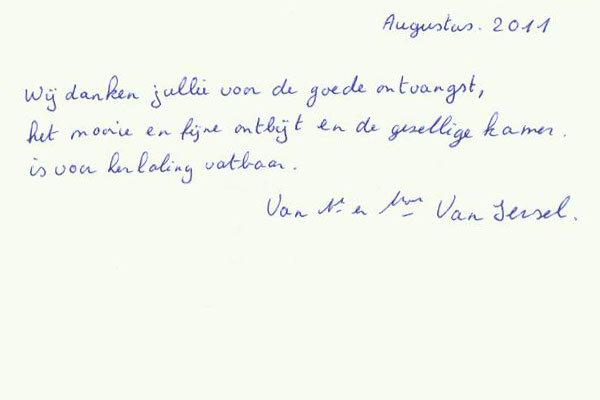 Augustus. 2011
Wij danken jullie voor de goede ontvangst,
het mooie en fijne ontbijt en de gesellige kamer.
is voor herhaling vatbaar.
Van Mr en Mvr Van Iersel.